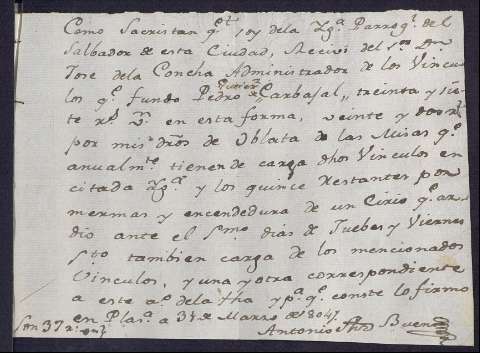 Como Sacristan qᵉ soy de la Ygᵃ Parroqˡ del
Salbador de esta Ciudad, Recivi del Sᵒʳ Dⁿ
Jose de la Concha Administrador de los Vincu
los qᵉ fundo Pedro Gutierᶻ Carbajal, treinta y sie
te rˢ vⁿ en esta forma, veinte y dos rˢ
por mis dros de Oblata de las Misas qᵉ
anualmᵗᵉ tienen de carga dhos Vinculos en
citada Ygᵃ y los quince restantes por
mermas y encendedura de un Cirio qᵉ ar
dio ante el Sᵐᵒ dias de Juebes y Viernes
Sᵗᵒ tambien carga de los mencionados
Vinculos, y una y otra correspondiente
a este aᵒ de la fha y pᵃ qᵉ conste lo firmo
en Plasᵃ a 31 de Marzo de 1804
Son 37 rˢ vⁿ
Antonio Bueno